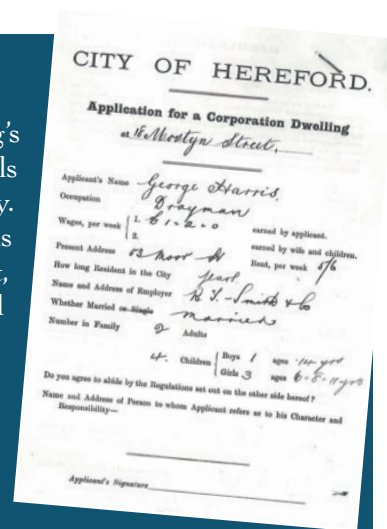 g's
ls
y.
s
t,
l
CITY OF HEREFORD.
Application for a Corporation Dwelling
at 18 Mostyn Street,
Applicant's Name George Harris,
Occupation Drayman
Wages, per week { 1. £1-2-0 earned by applicant.
2. earned by wife and children.
Present Address 53 Moor St Rent, per week 5/6
How long Resident in the City years.
Name and Address of Employer R. T. Smith & Co
Whether Married or Single Married
Number in Family 2 Adults
4. Children { Boys 1 ages 14 yrs
Girls 3 ages 6-8-11 yrs
Do you agree to abide by the Regulations set out on the other side hereof?
Name and Address of Person to whom Applicant refers as to his Character and
Responsibility—
Applicant's Signature